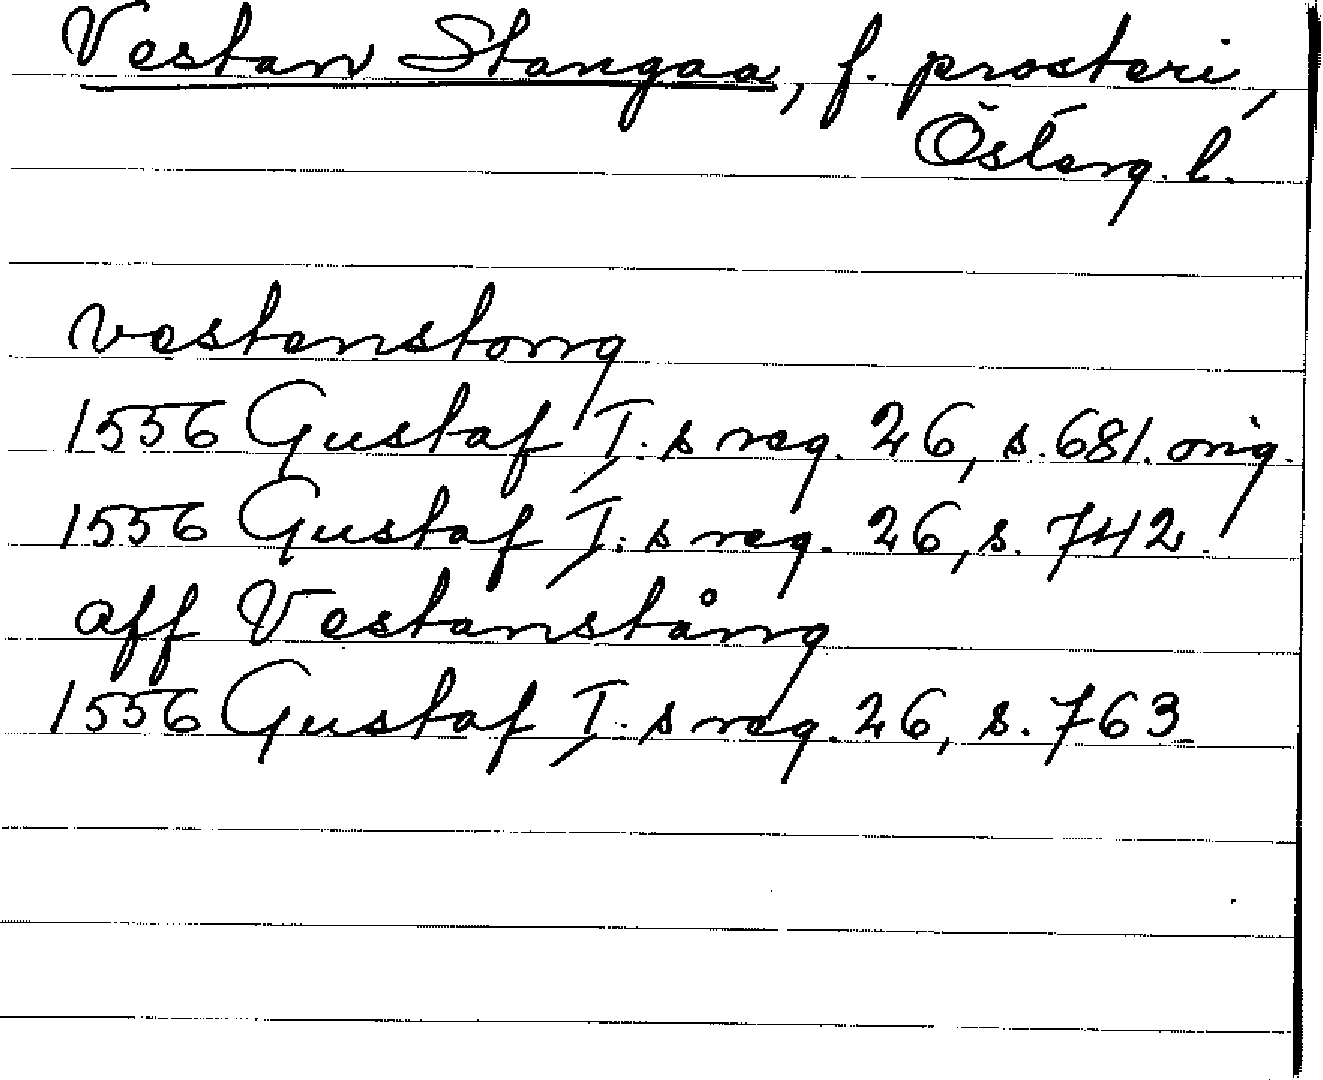 Vestan Stangaa, f. prosteri,
Österg. l.
vestenstong
1556 Gustaf I:s reg. 26, s. 681. orig.
1556 Gustaf I:s reg. 26, s. 742.
aff Vestanstång
1556 Gustaf I:s reg. 26, s. 763